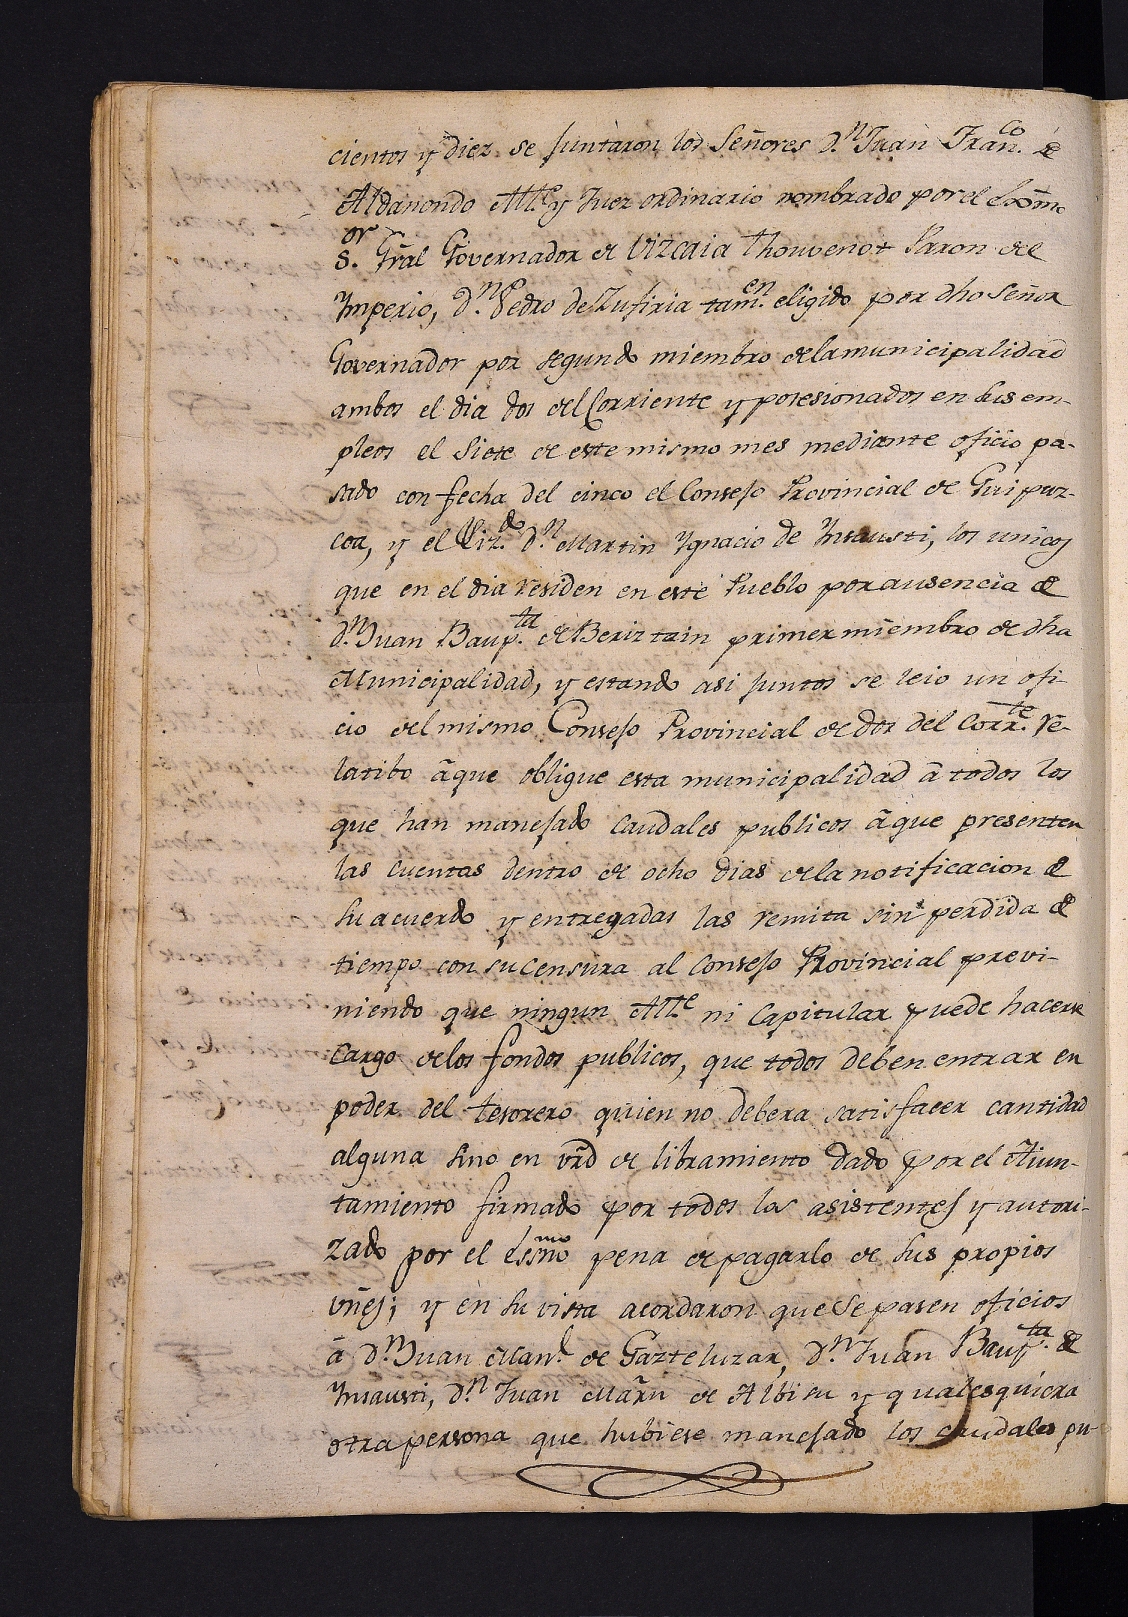 cientos y diez se juntaron los Señores d.n Juan Fran.co de
Aldanondo Alte y Juez ordinario nombrado por el Exmo
S.or Gral Governador de Vizcaia Thouvenot Varon del
Ymperio, d.n Pedro de Zufiria tam.en eligido por dho Señor
Governador por segundo miembro de la municipalidad
ambos el dia dos del Corriente y posesionados en sus em-
pleos el Siete de este mismo mes mediante oficio pa-
sado con fecha del cinco el Consejo Provincial de Guipuz-
coa, y el Liz.do d.n Martin Ygnacio de Ynsausti, los unicos
que en el dia residen en este Pueblo por ausencia de
d.n Juan Baup.ta de Beriztain primer miembro de dha
Municipalidad, y estando asi juntos se leio un ofi-
cio del mismo Consejo Provincial de dos del Corr.te re-
latibo á que obligue esta municipalidad á todos los
que han manejado Caudales publicos á que presenten
las cuentas dentro de ocho dias de la notificacion de
su acuerdo y entregadas las remita sin perdida de
tiempo con su censura al Consejo Provincial previ-
niendo que ningun Alte ni Capitular puede hacerse
Cargo de los fondos publicos, que todos deben entrar en
poder del tesorero quien no debera satisfacer cantidad
alguna sino en vrd de libramiento dado por el Aiun-
tamiento firmado por todos los asistentes y autori-
zado por el Essno pena de pagarlo de sus propios
vñes; y en su vista acordaron que se pasen oficios
á d.n Juan Man.l de Gazteluzar, d.n Juan Baup.ta de
Ynsausti, d.n Juan Marn de Albisu y qualesquiera
otra persona que hubiese manejado los caudales pu-